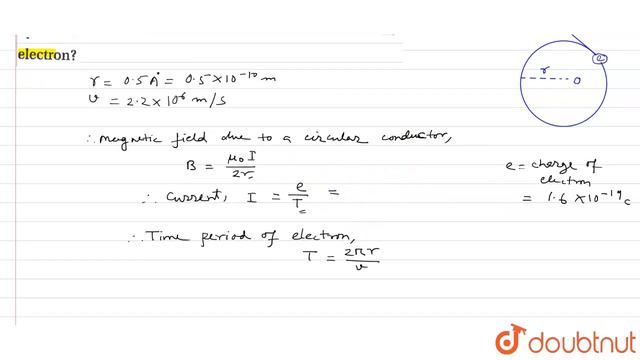 electron?
r = 0.5 A° = 0.5 × 10⁻¹⁰ m
v = 2.2 × 10⁶ m/s
∴ magnetic field due to a circular conductor,
B = μ₀ I / 2r
∴ current, I = e / T =
∴ Time period of electron,
T = 2πr / v
e
r
O
e = charge of
electron
= 1.6 × 10⁻¹⁹ C
doubtnut